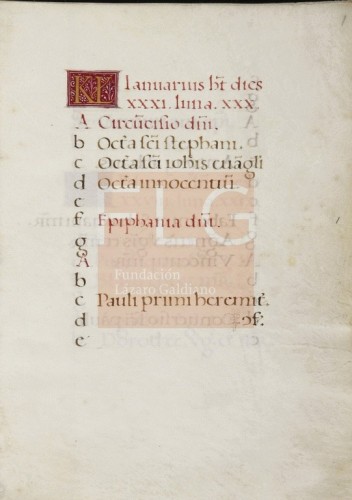 KL Ianuarius ht dies
XXXI. luna. XXX.
A Circũcisio dñi.
b Octa scĩ stephani.
c Octa scĩ iohis euãgli
d Octa innocentiũ.
e
f Epiphania dñi.
g
A.
b
c Pauli primi heremit.
d
e
Fundación
Lázaro Galdiano